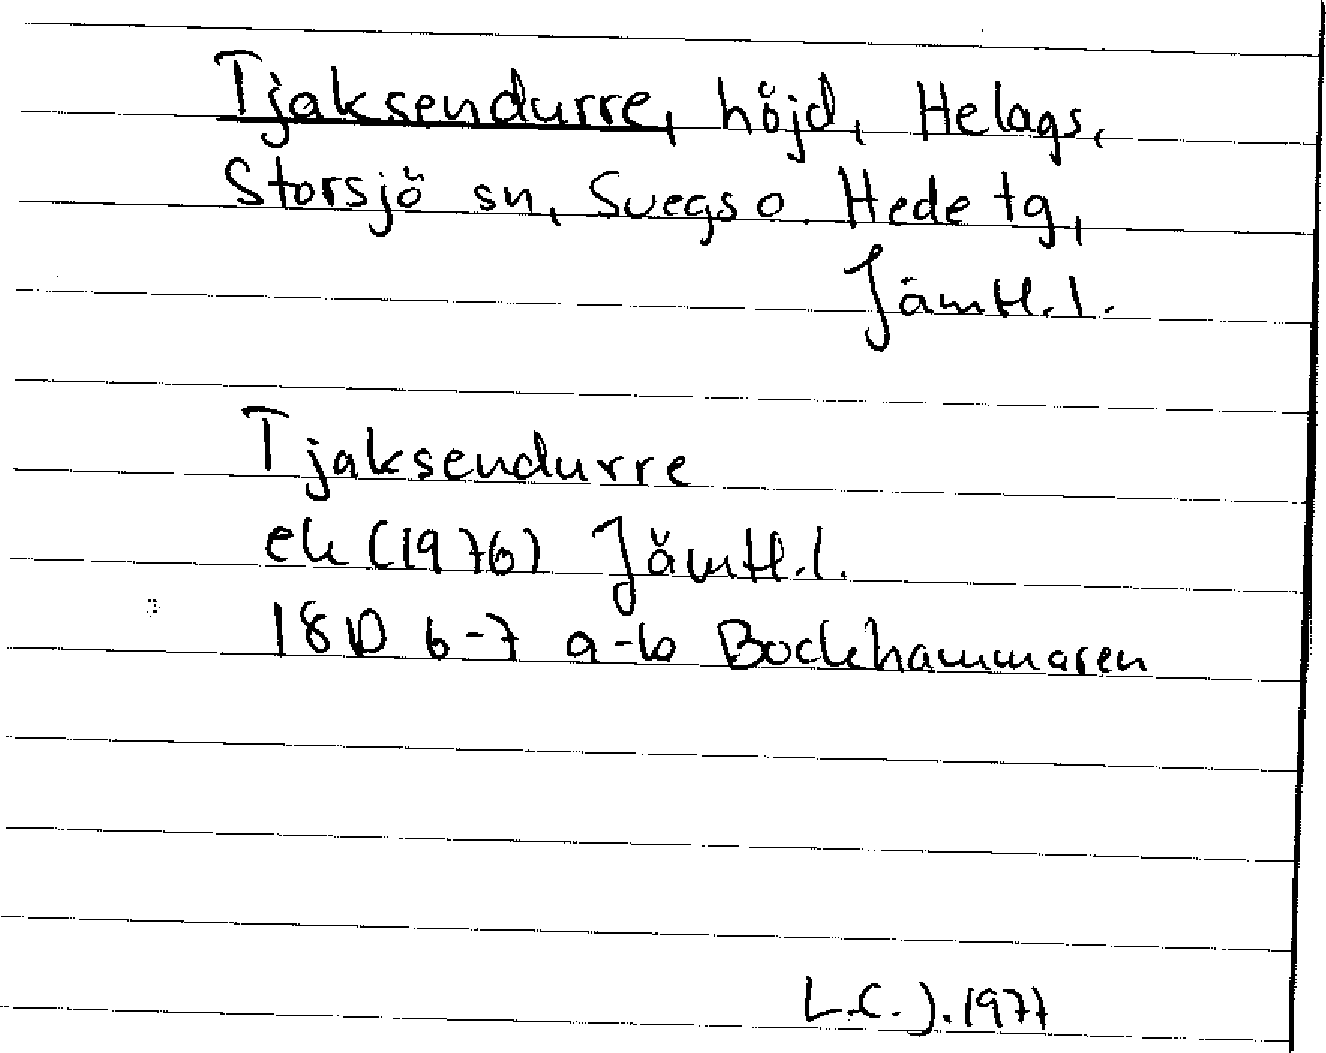 Tjaksendurre, höjd, Helags,
Storsjö sn, Svegs o. Hede tg,
Jämtl. l.
Tjaksendurre
ek (1976) Jämtl. l.
18D 6-7 a-b Bockhammaren
L.C.J. 1977